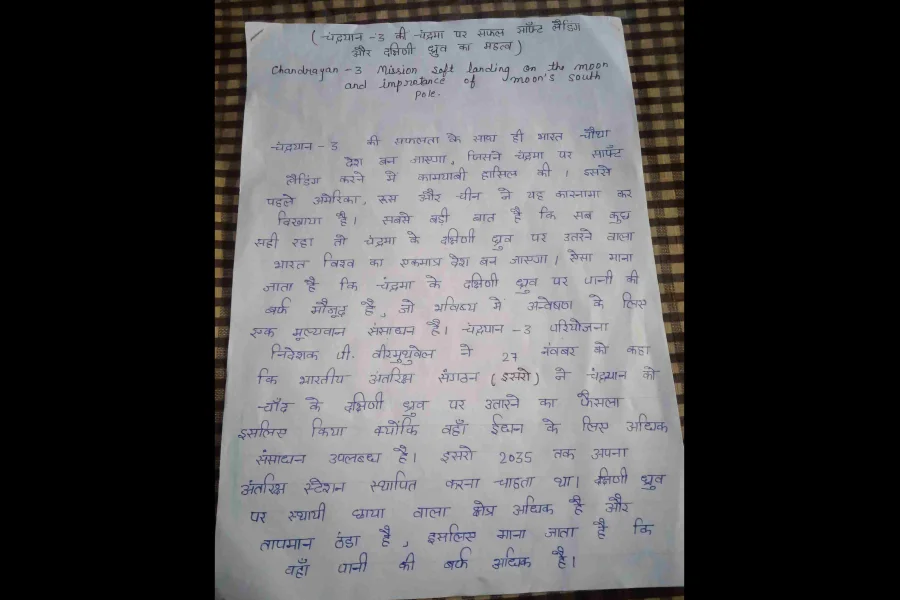 (चंद्रयान -3 की चंद्रमा पर सफल सॉफ्ट लैंडिंग
और दक्षिणी ध्रुव का महत्व)
Chandrayan -3 Mission soft landing on the moon
and impratance of moon's south
Pole.
चंद्रयान -3 की सफलता के साथ ही भारत चौथा
देश बन जाएगा, जिसने चंद्रमा पर सॉफ्ट
लैंडिंग करने में कामयाबी हासिल की। इससे
पहले अमेरिका, रूस और चीन ने यह कारनामा कर
दिखाया है। सबसे बड़ी बात है कि सब कुछ
सही रहा तो चंद्रमा के दक्षिणी ध्रुव पर उतरने वाला
भारत विश्व का एकमात्र देश बन जाएगा। ऐसा माना
जाता है कि चंद्रमा के दक्षिणी ध्रुव पर पानी की
बर्फ मौजूद है, जो भविष्य में अन्वेषण के लिए
एक मूल्यवान संसाधन है। चंद्रयान -3 परियोजना
निदेशक पी. वीरमुथुवेल ने 27 नंवबर को कहा
कि भारतीय अंतरिक्ष संगठन (इसरो) ने चंद्रयान को
चाँद के दक्षिणी ध्रुव पर उतारने का फैसला
इसलिए किया क्योंकि वहाँ ईंधन के लिए अधिक
संसाधन उपलब्ध है। इसरो 2035 तक अपना
अंतरिक्ष स्टेशन स्थापित करना चाहता था। दक्षिणी ध्रुव
पर स्थायी छाया वाला क्षेत्र अधिक है और
तापमान ठंडा है, इसलिए माना जाता है कि
वहाँ पानी की बर्फ अधिक है।